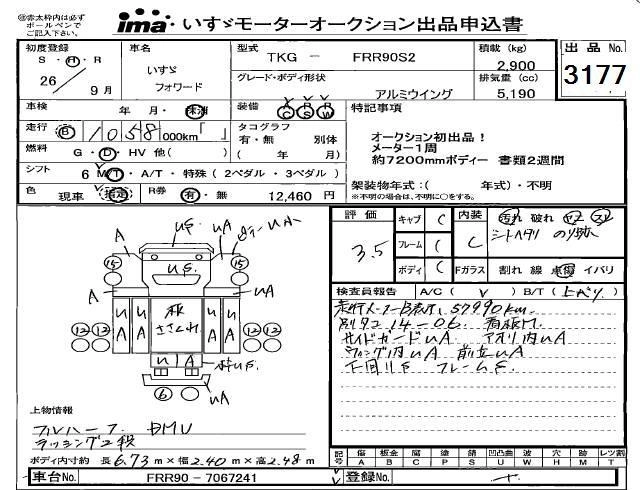 ㊟赤太枠内は必ず
ボールペンで
ご記入下さい。
ima いすゞモーターオークション出品申込書
初度登録
S・H・R
26年 9月
車名
いすゞ
フォワード
型式 TKG － FRR90S2
グレード・ボディ形状
アルミウイング
積載 (kg)
2,900
排気量 (cc)
5,190
出品 No.
3177
車検 年 月・抹消
装備 AC PS PW
走行 1058 000km「 」
タコグラフ
有・無 別体
( 年 月)
燃料 G・D・HV 他( )
シフト 6 MT・A/T・特殊(2ペダル・3ペダル)
色 現車 指定
R券 有・無 12,460 円
特記事項
オークション初出品！
メーター1周
約7200mmボディー 書類2週間
架装物年式：( 年式)・不明
※不明の場合は、不明に○をする。
評価 3.5
キャブ C
フレーム C
ボディ C
内装 C
汚れ 破れ コゲ スレ
シートヘタリ のり跡
Fガラス 割れ 線 点傷 イバリ
検査員報告 A/C( ✓ ) B/T( )
57990km
14-06
サイドガードUA アオリ内UA
ウィング内UA 前立UA
下回りS フレームS
A A UA
US
15 15
US
A UA
UA UA
板
ささくれ
12 12 12 12
U A
UA
6
上物情報
フルハーフ DMU
ラッシング2段
ボディ内寸約 長6.73m×幅2.40m×高2.48m
記号 傷 板金 腐 塗 錆 凹凸曲 波 穴 跡 レツ割
A B C P S U W H M T
車台No. FRR90 - 7067241
登録No.